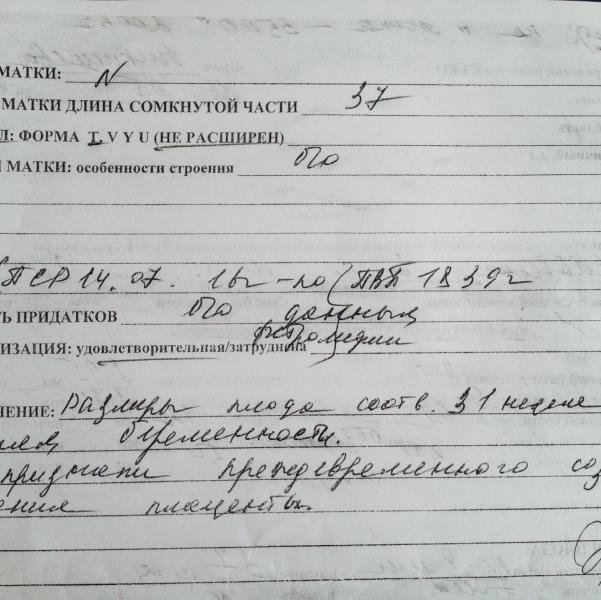 МАТКИ: N
МАТКИ ДЛИНА СОМКНУТОЙ ЧАСТИ 37
Л: ФОРМА T, V Y U (НЕ РАСШИРЕН)
МАТКИ: особенности строения б/о
ПСР 14.07. (ПВП 1839г
ТЬ ПРИДАТКОВ б/о данным
фетометрии
ИЗАЦИЯ: удовлетворительная/затруднена
ЧЕНИЕ: Размеры плода соотв. 31 неделе
беременности.
признаки преждевременного соз
ения плаценты.